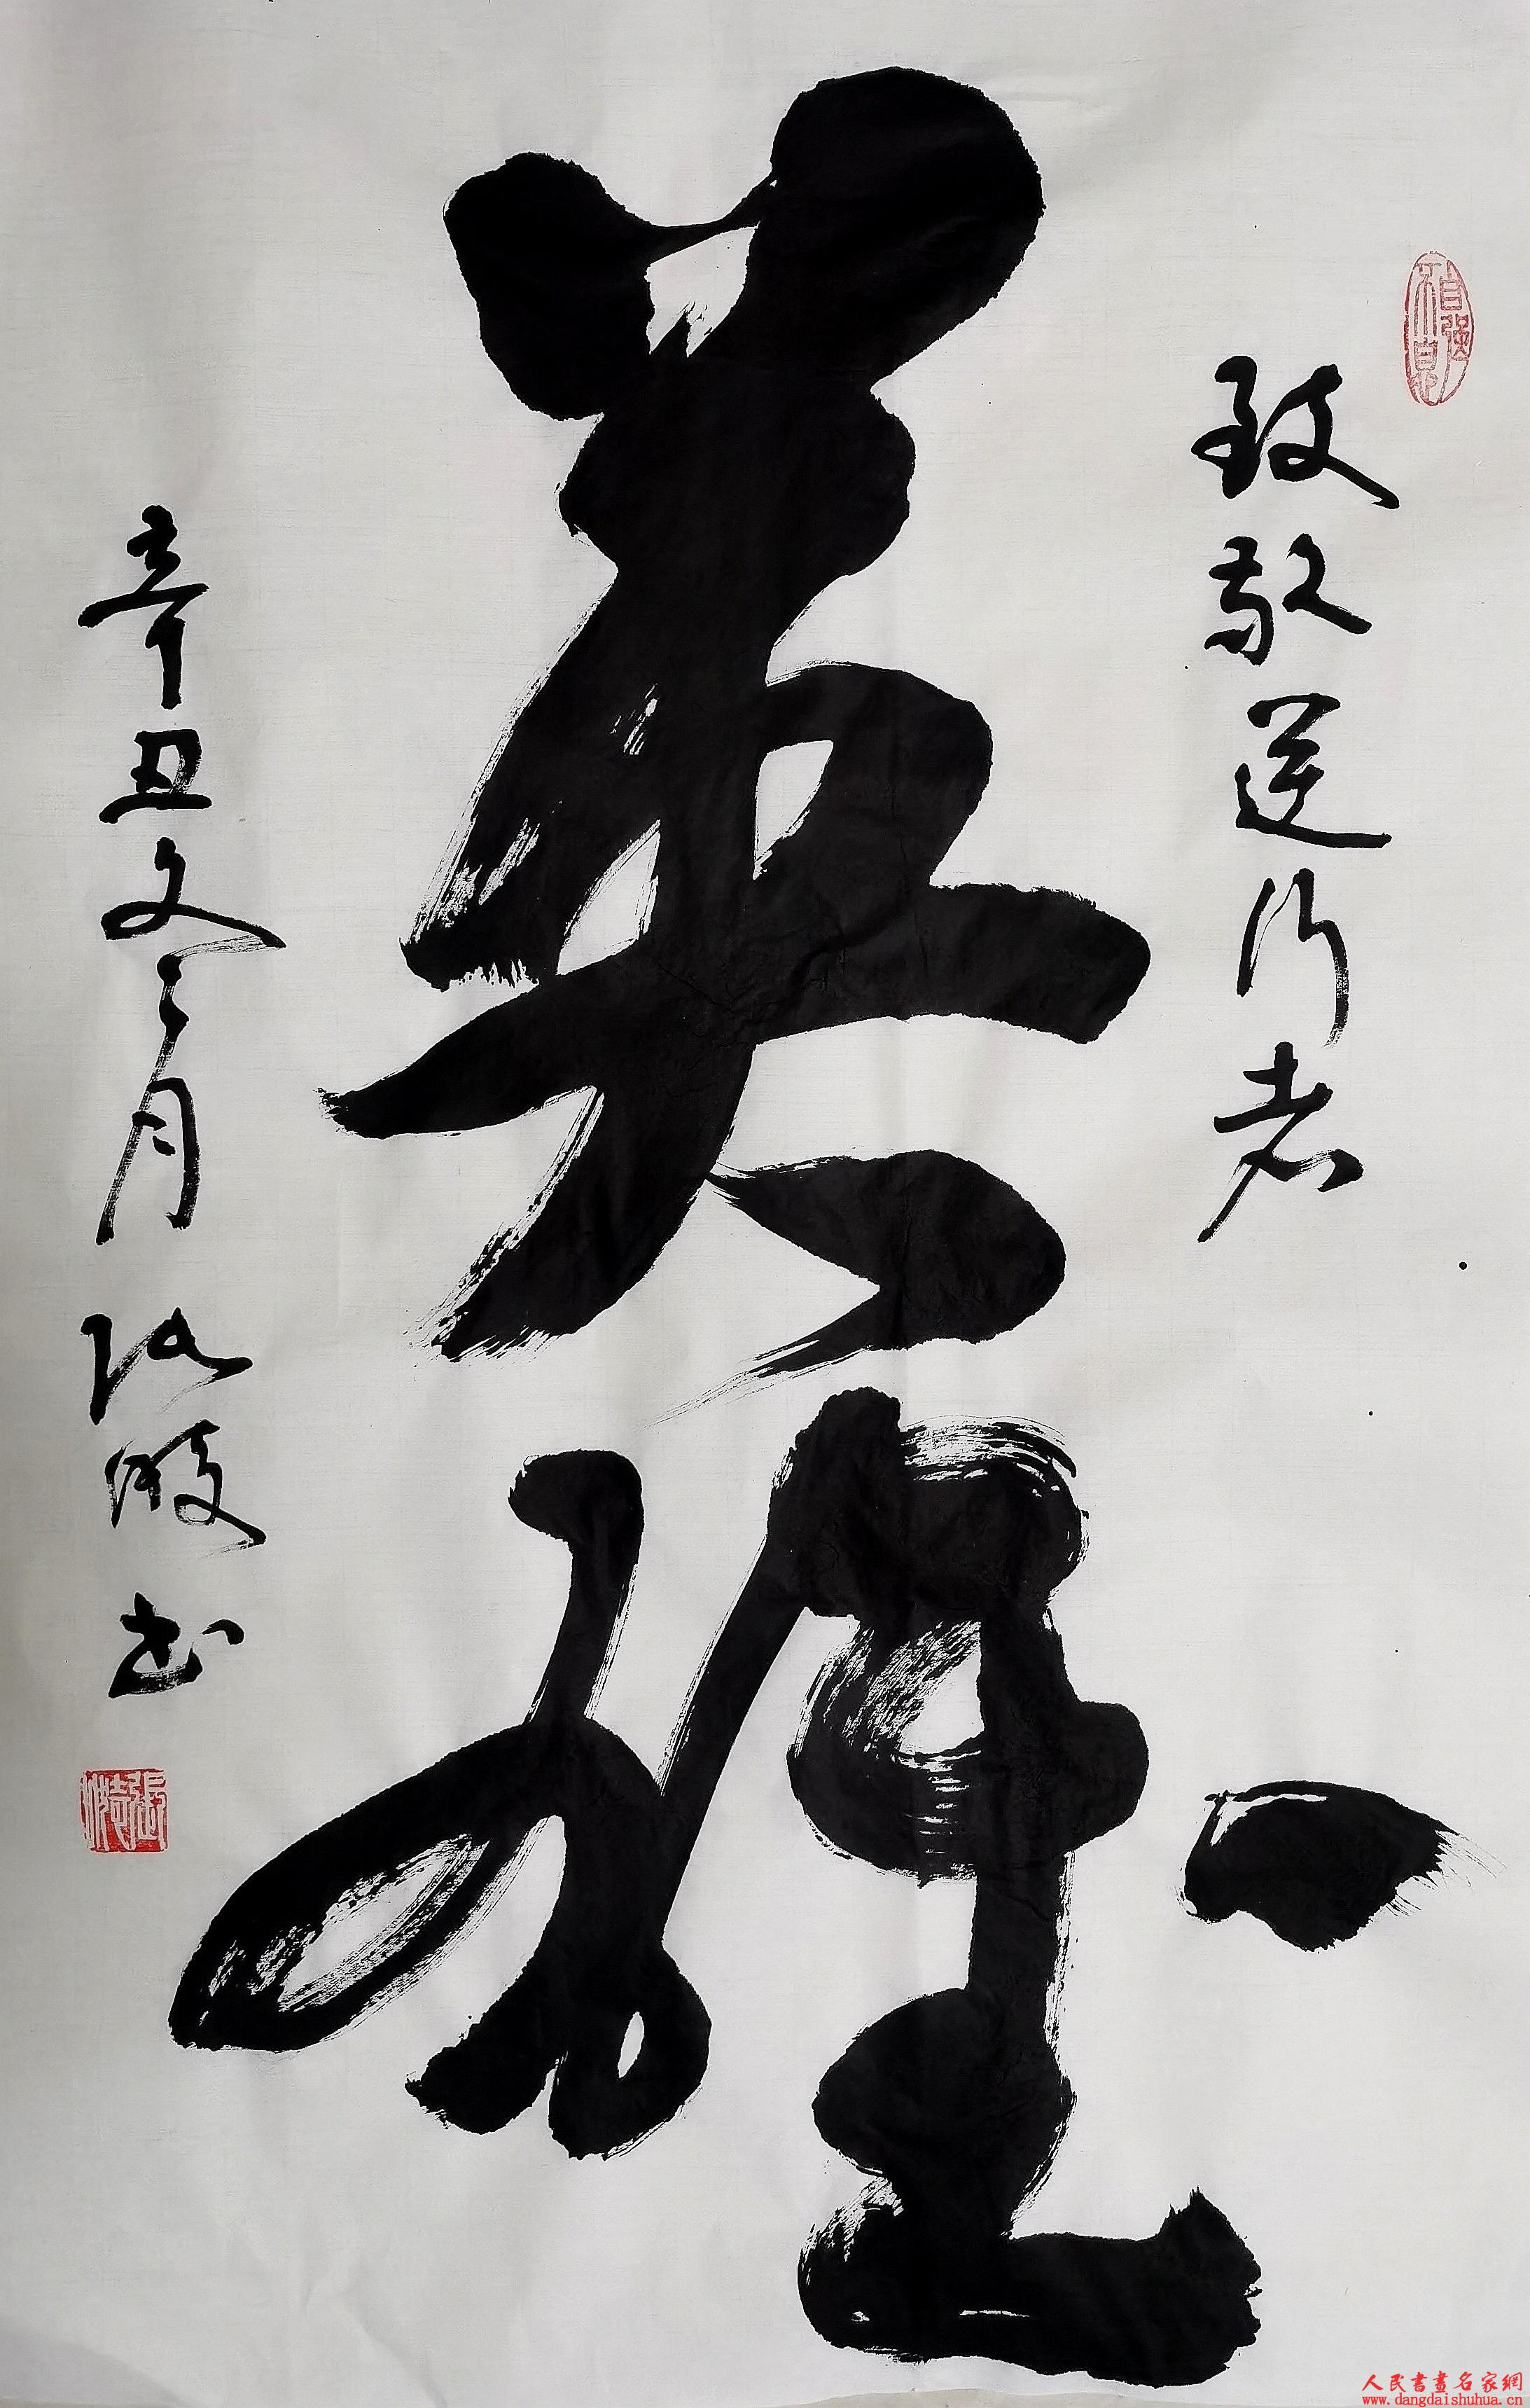 自强不息
致敬逆行者
英雄
辛丑冬月 张 书
人民書畫名家網
www.dangdaishuhua.cn